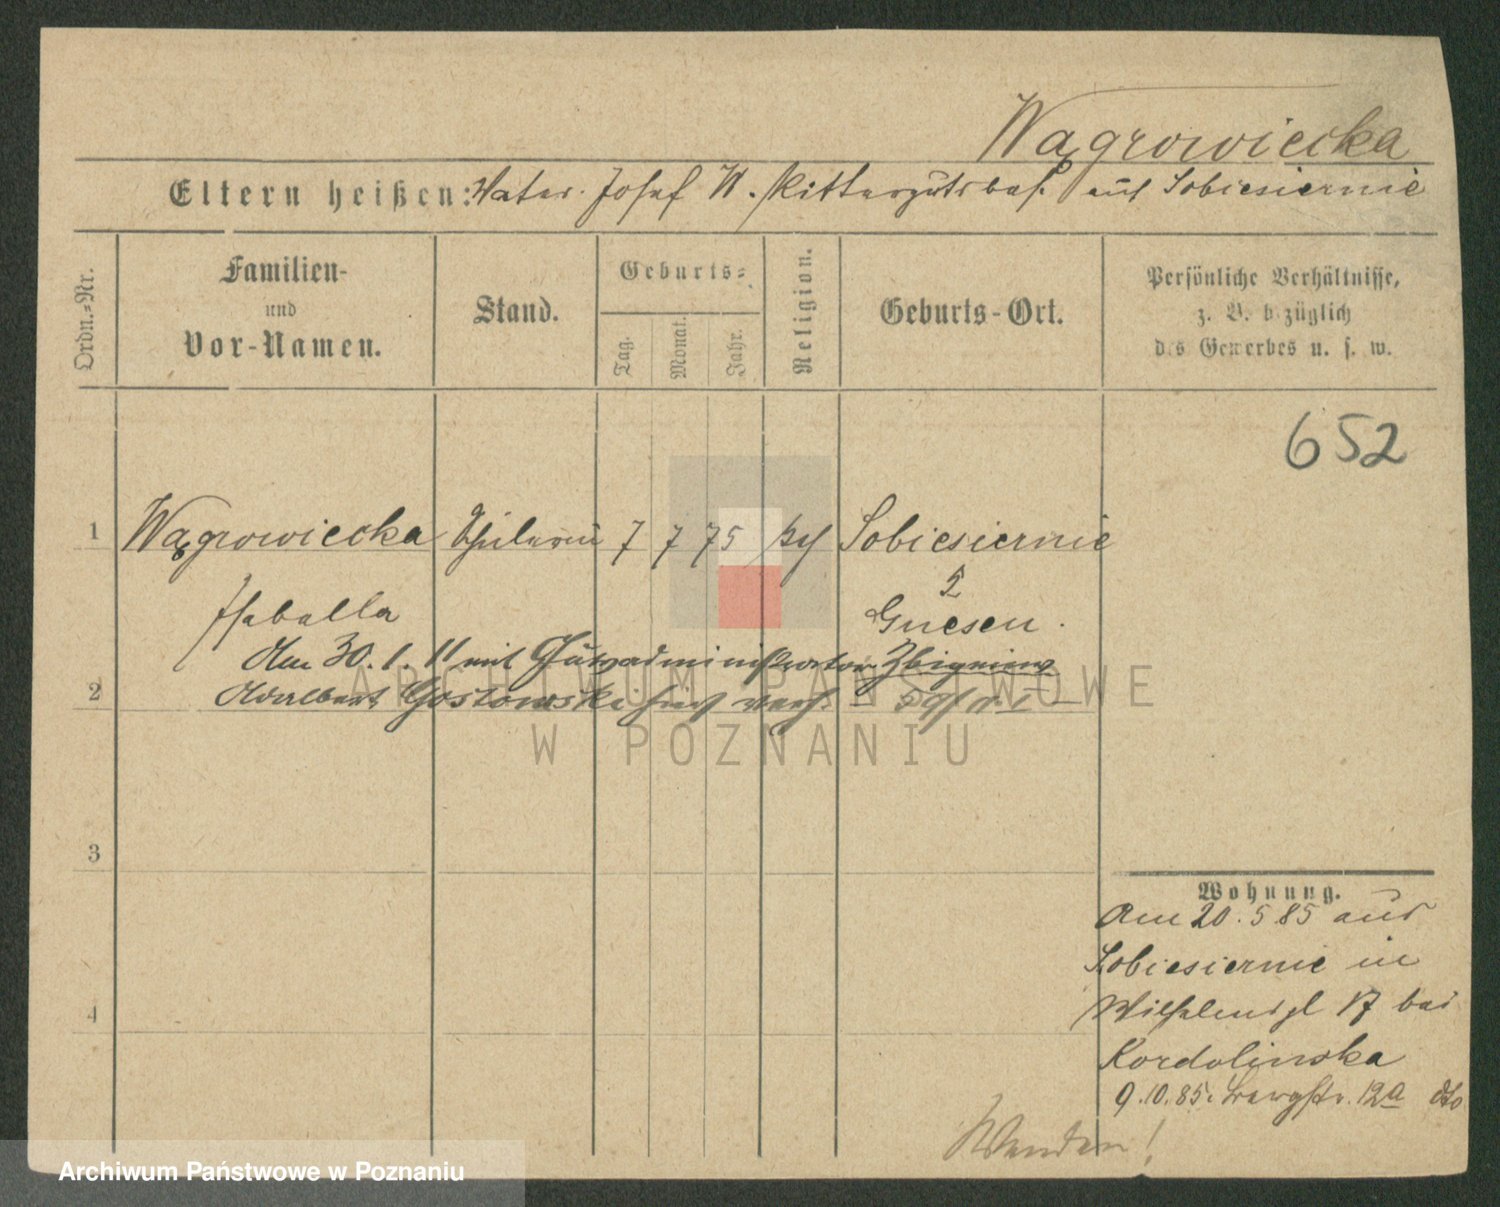 Wągrowiecka
Eltern heißen: Vater Josef W. Rittergutsbes. auf Sobiesiernie
Ordn.=Nr.
Familien-
und
Vor-Namen.
Stand.
Geburts=
Tag.
Monat.
Jahr.
Religion.
Geburts-Ort.
Persönliche Verhältnisse,
z. B. bezüglich
des Gewerbes u. s. w.
652
1 Wągrowiecka Schülerin 7 7 75 Sobiesiernie
Isabella
Gnesen.
Am 30.1.11 mit Gutsadministrator Zbigniew
2 Adalbert Gostowski hier verh.
3
4
Wohnung.
Am 20.5 85 aus
Sobiesiernie in
Wilhelmspl 17 bei
Kordolinska
9.10.85. Bergstr. 12a dto
Wenden!
ARCHIWUM PAŃSTWOWE
W POZNANIU
Archiwum Państwowe w Poznaniu